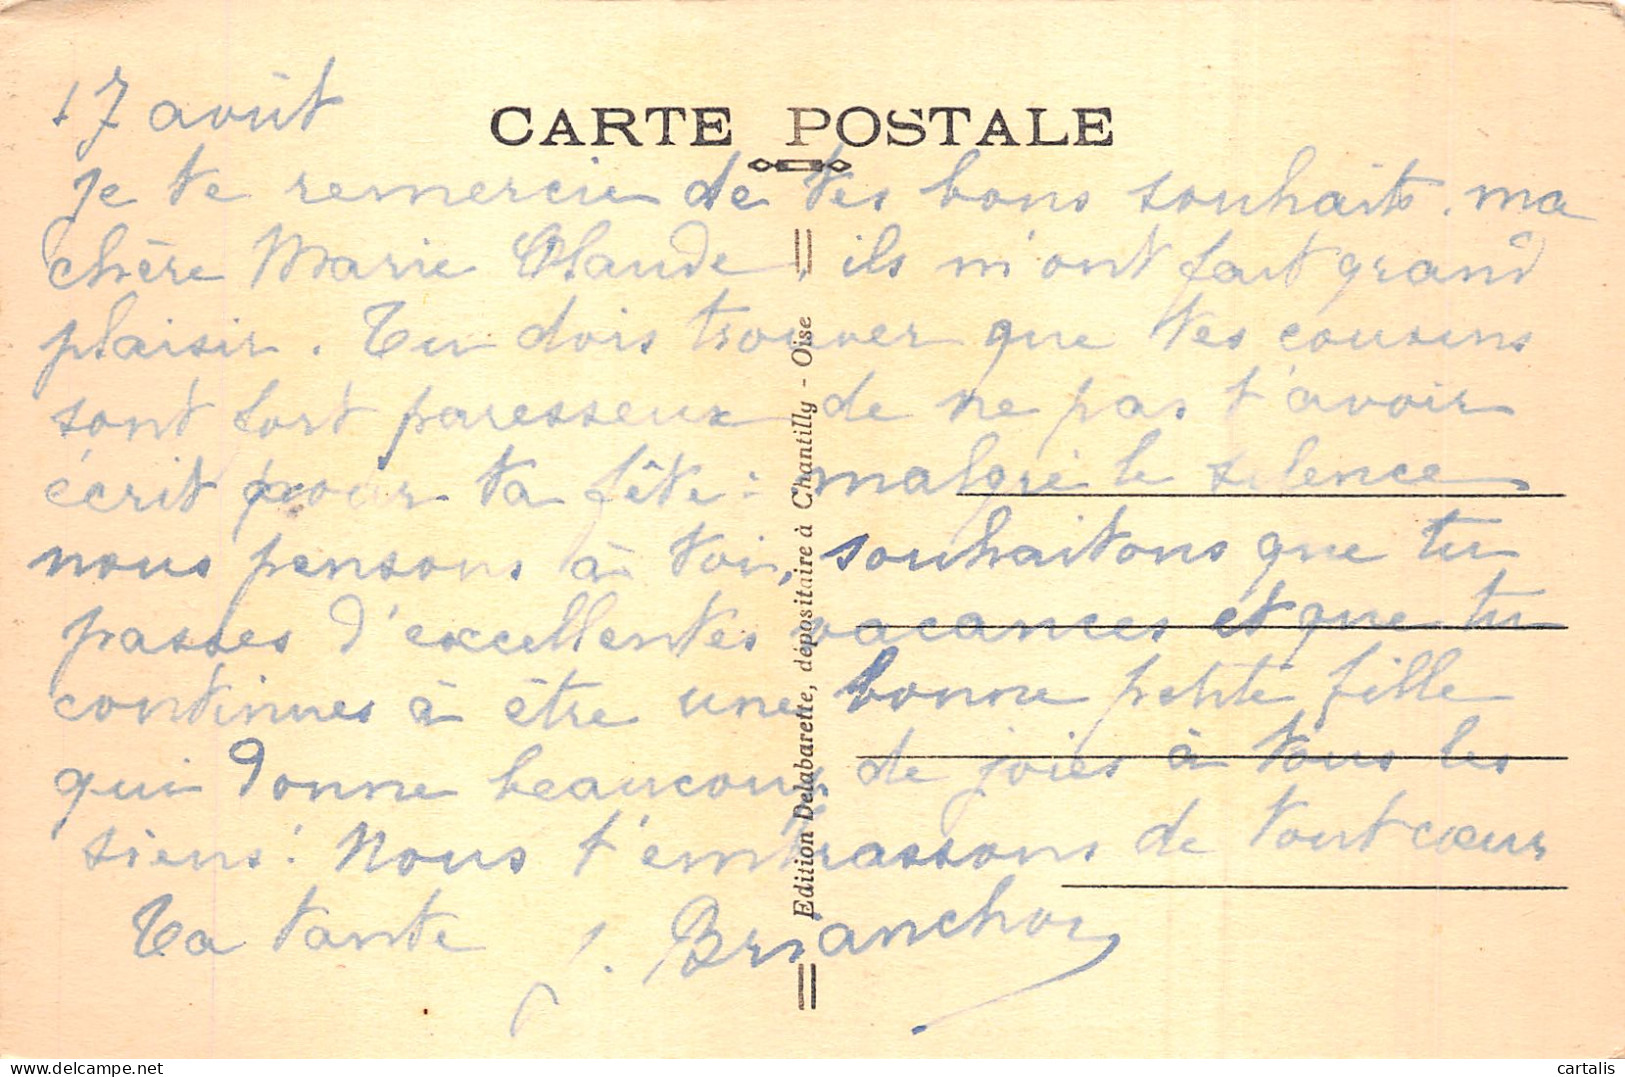 17 août
CARTE POSTALE
Je te remercie de tes bons souhaits, ma
chère Marie Claude, ils m'ont fait grand
plaisir. Tu dois trouver que tes cousins
sont fort paresseux de ne pas t'avoir
écrit pour ta fête : malgré le silence
nous pensons à toi, souhaitons que tu
passes d'excellentes vacances et que tu
continues à être une bonne petite fille
qui donne beaucoup de joies à tous les
siens. Nous t'embrassons de tout cœur
Ta tante J. Brianchon
Edition Delabarette, dépositaire à Chantilly - Oise
cartalis